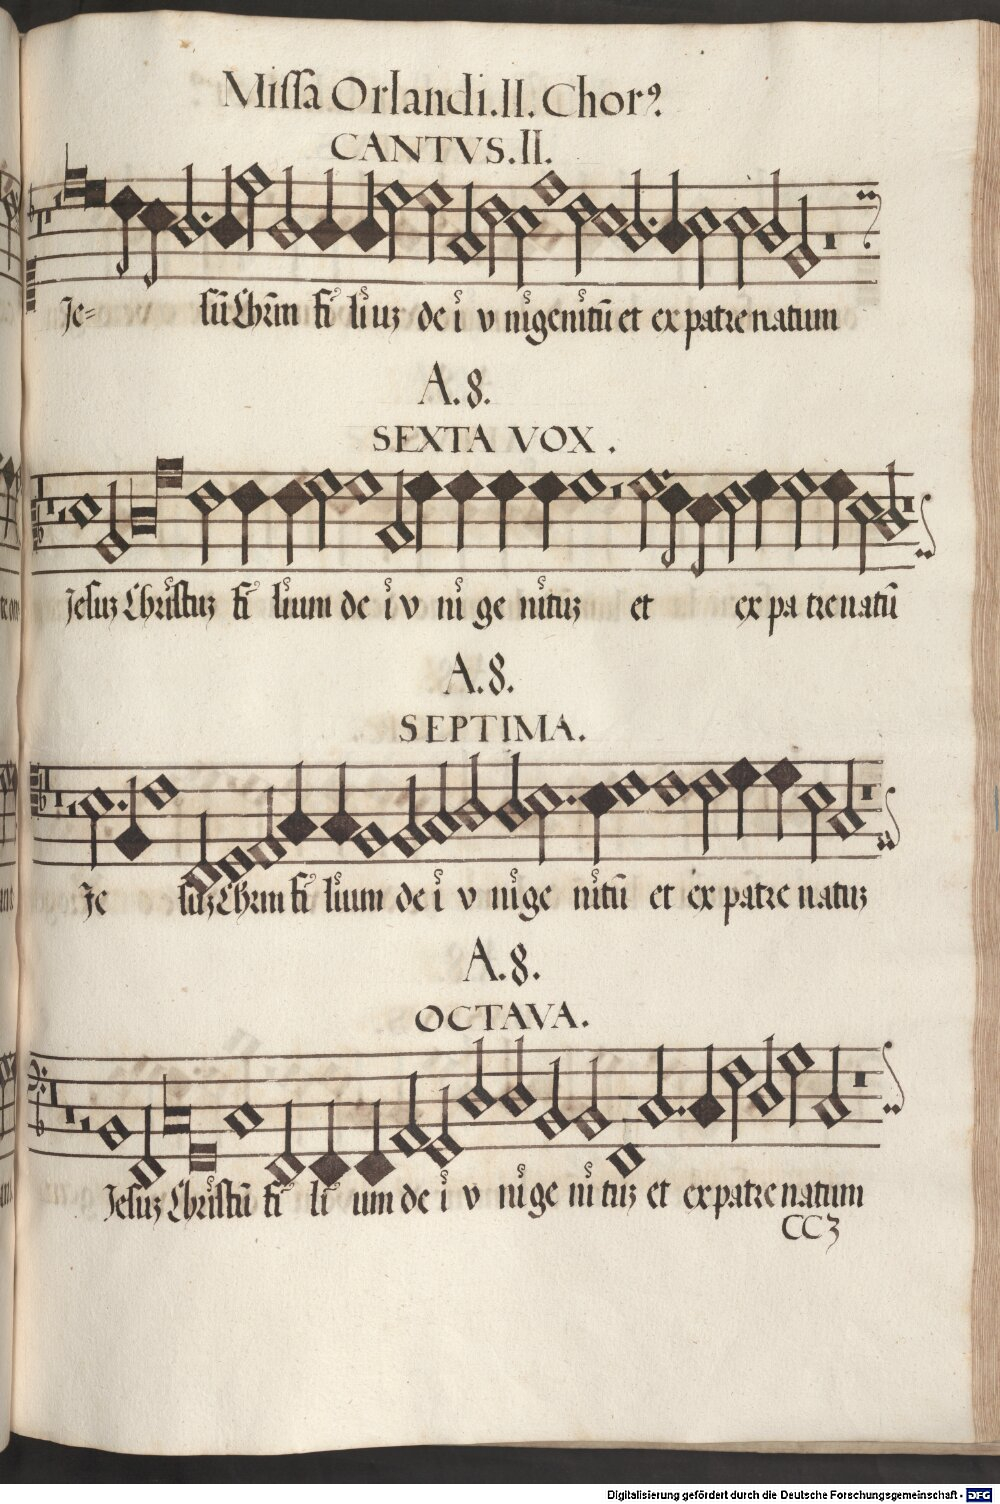 Missa Orlandi. II. Chorꝰ.
CANTVS. II.
Je= sũ Chr̃m fi liuz de i v nigenitũ et ex patre natum
A. 8.
SEXTA VOX.
Jesuz Christuz fi lium de i v ni ge nituz et ex pa tre natũ
A. 8.
SEPTIMA.
Je suz Chr̃m fi lium de i v ni ge nitũ et ex patre natuz
A. 8.
OCTAVA.
Jesuz Christũ fi li um de i v ni ge ni tuz et ex patre natum
CC3
Digitalisierung gefördert durch die Deutsche Forschungsgemeinschaft - DFG